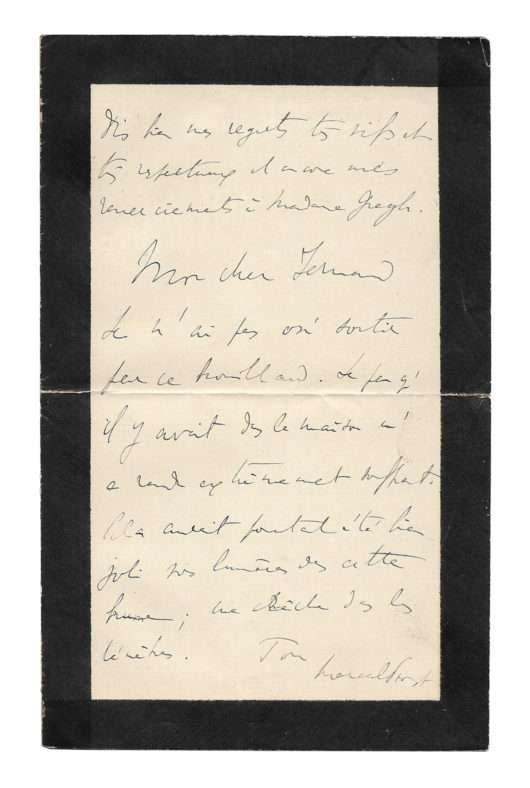 Dis bien mes regrets très vifs et
très respectueux et encore mes
remerciements à Madame Gregh.
Mon cher Fernand
Je n'ai pas osé sortir
par ce brouillard. Le peu qu'
il y avait dans la maison m'
a rendu extrêmement souffrant.
Cela aurait pourtant été bien
joli vos lumières dans cette
brume ; une crèche dans les
ténèbres. Ton
Marcel Proust